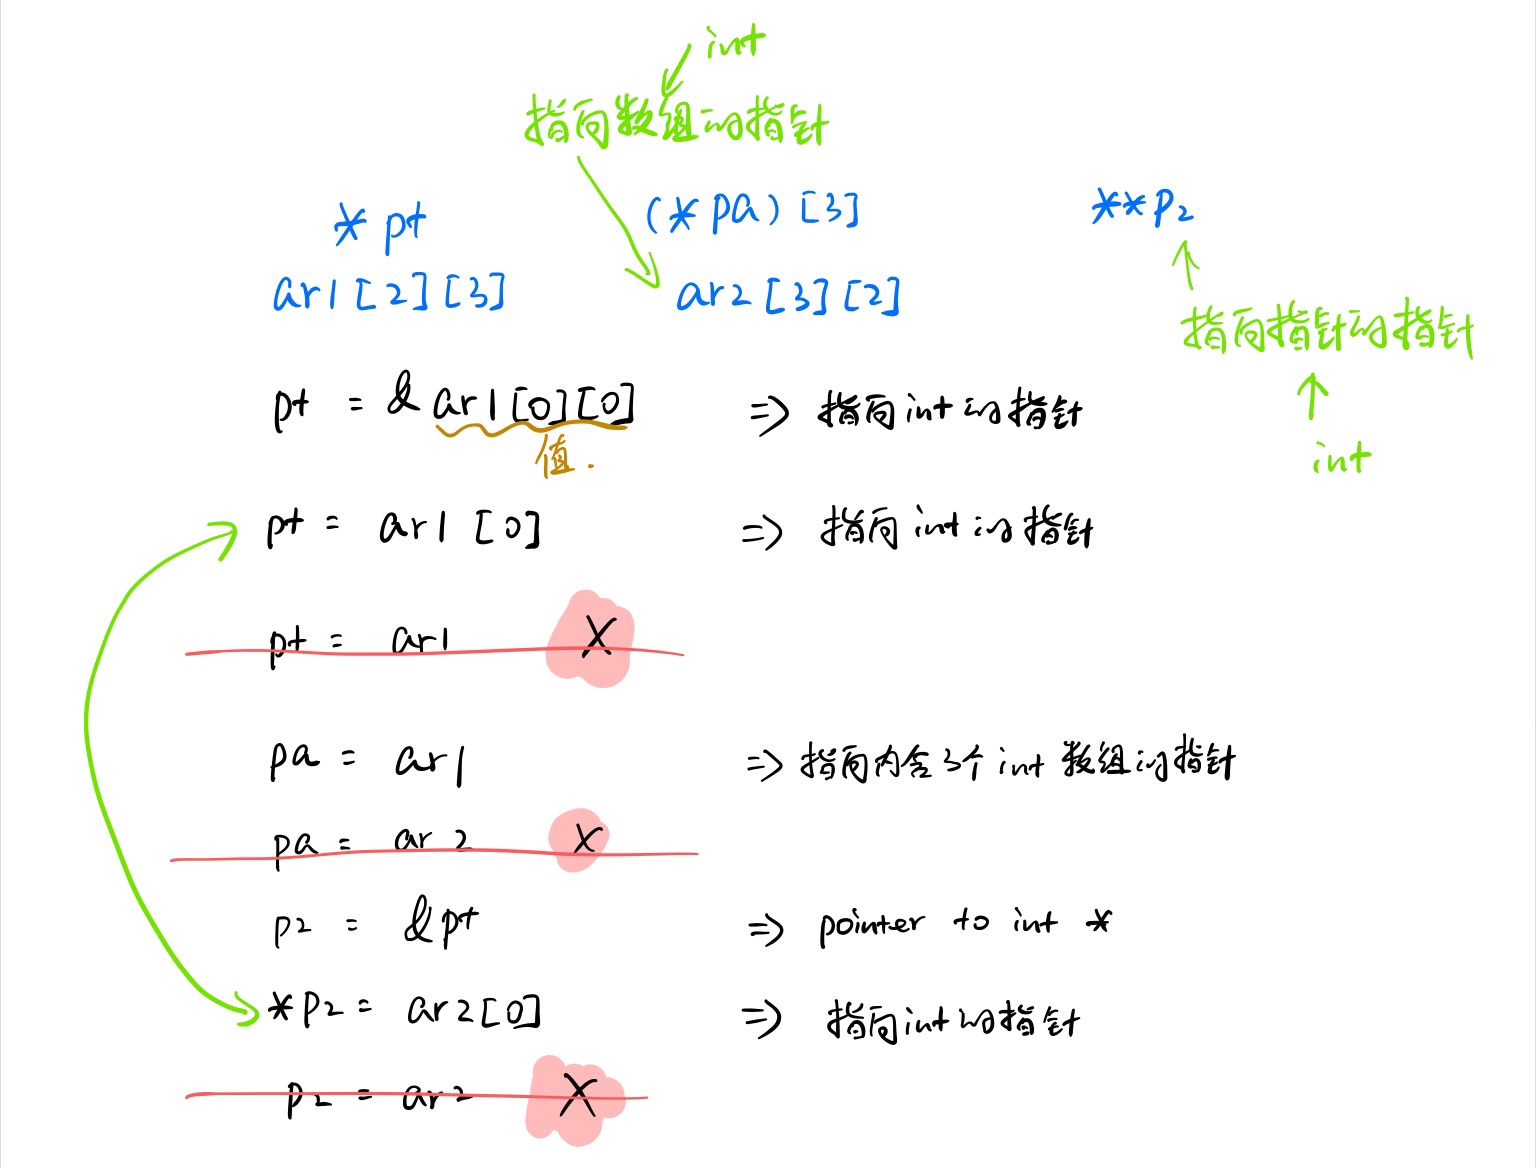 int
指向数组的指针
*pt (*pa)[3] **p2
ar1[2][3] ar2[3][2]
指向指针的指针
int
pt = &ar1[0][0] => 指向int的指针
值.
pt = ar1[0] => 指向int的指针
pt = ar1 X
pa = ar1 => 指向内含3个int数组的指针
pa = ar2 X
p2 = &pt => pointer to int *
*p2 = ar2[0] => 指向int的指针
p2 = ar2 X